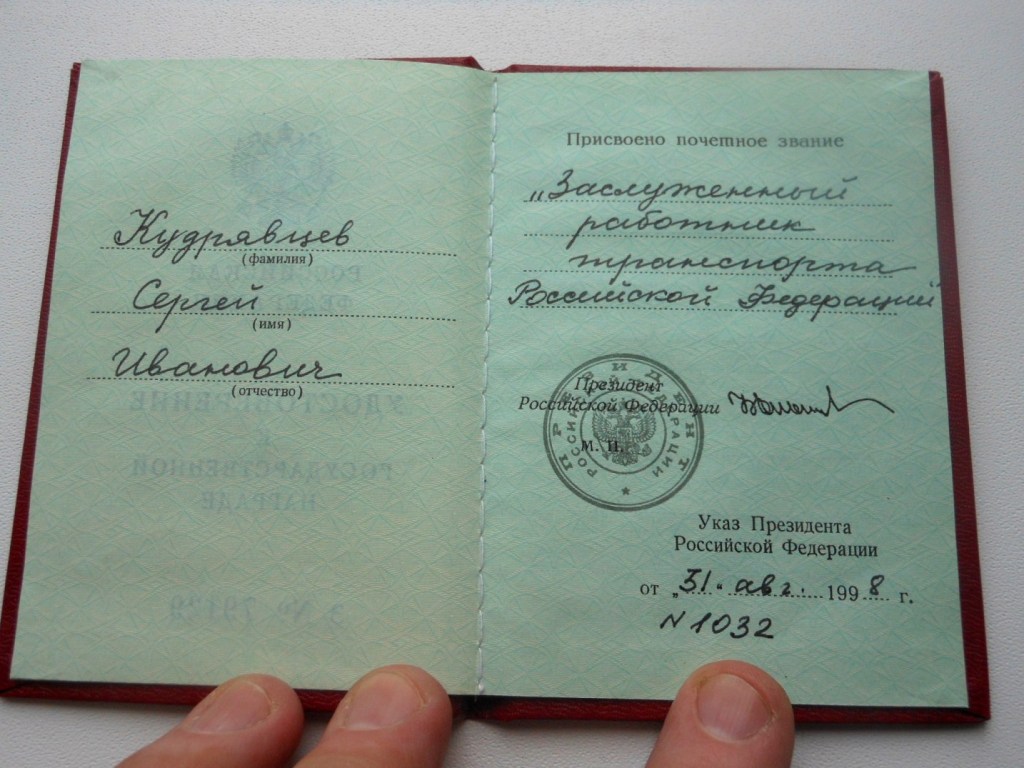 Кудрявцев
(фамилия)
Сергей
(имя)
Иванович
(отчество)
РОССИЙСКАЯ
УДОСТОВЕРЕНИЕ
К
ГОСУДАРСТВЕННОЙ
НАГРАДЕ
З № 79129
Присвоено почетное звание
„Заслуженный
работник
транспорта
Российской Федерации"
Президент
Российской Федерации
М. П.
ПРЕЗИДЕНТ
РОССИЙСКОЙ ФЕДЕРАЦИИ
Указ Президента
Российской Федерации
от „31" авг. 1998 г.
N 1032